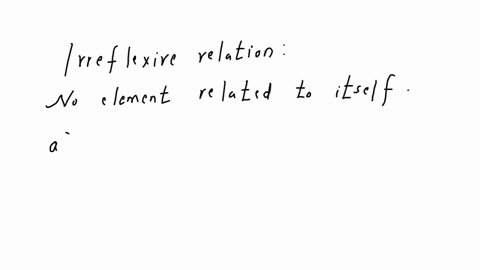 Irreflexive relation:
No element related to itself.
a